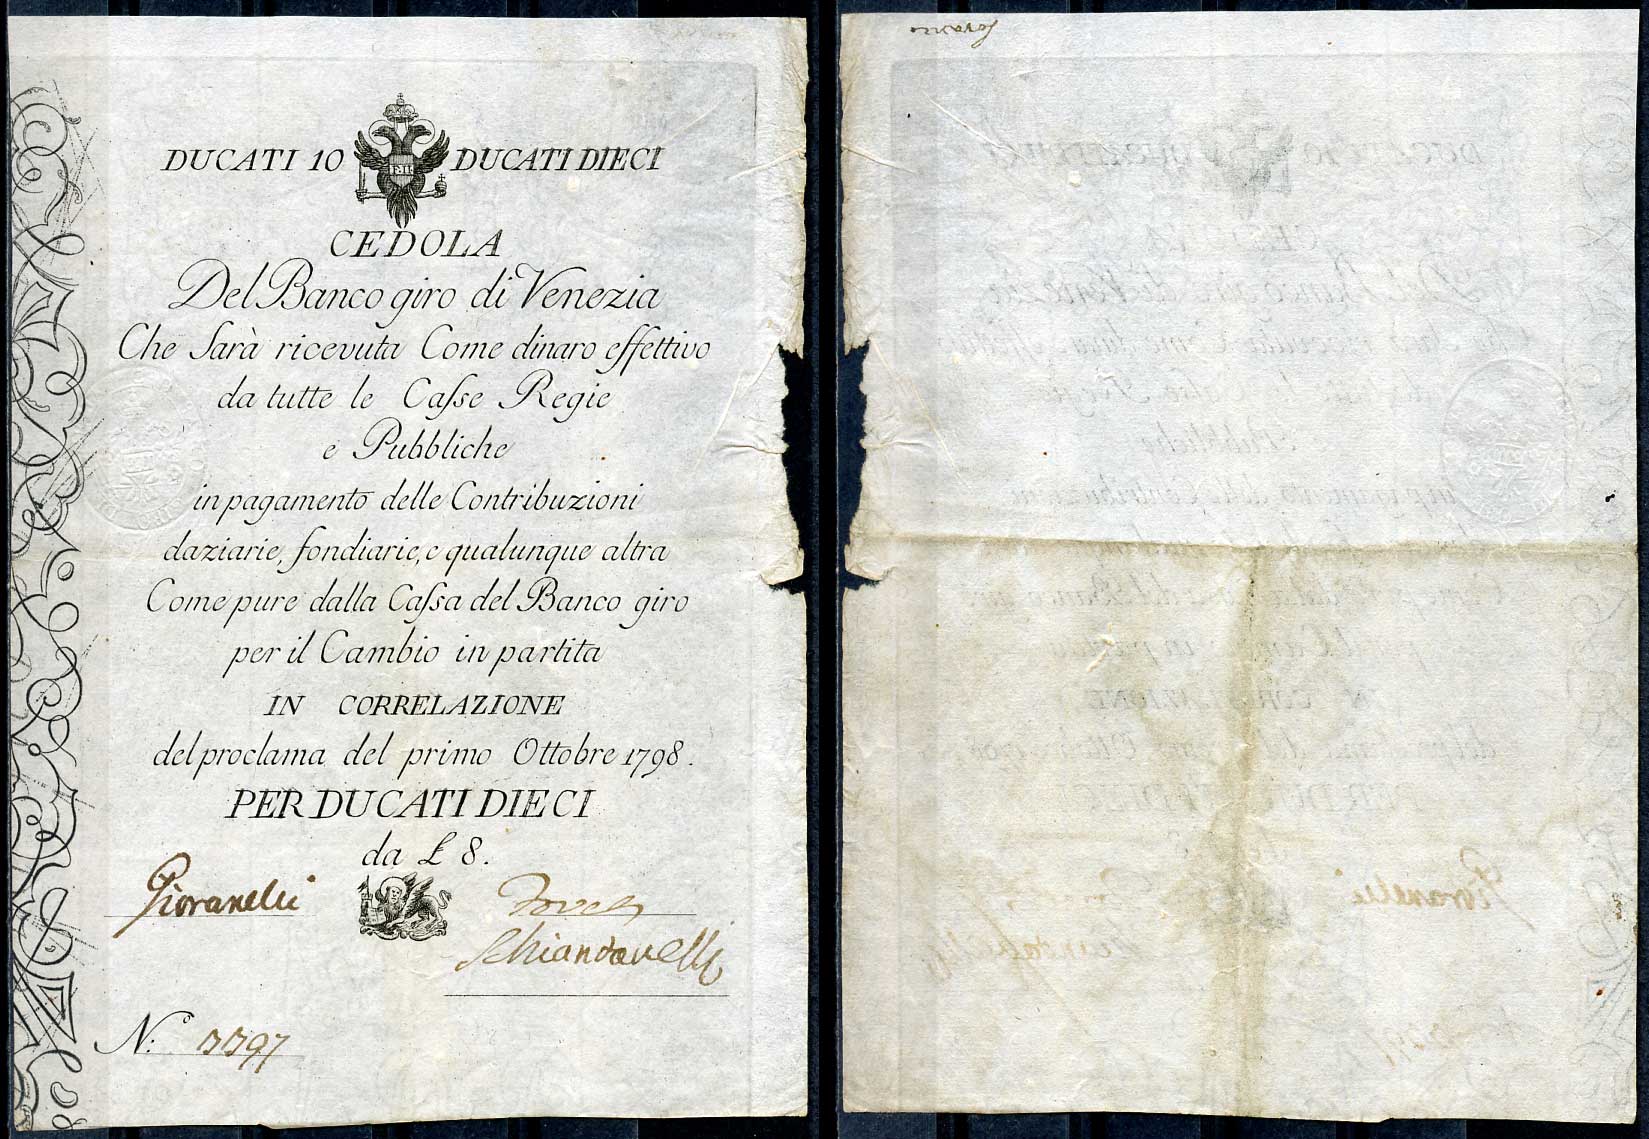 DUCATI 10 DUCATI DIECI
CEDOLA
Del Banco giro di Venezia
Che Sarà ricevuta Come dinaro effettivo
da tutte le Casse Regie
e Pubbliche
in pagamento delle Contribuzioni
daziarie, fondiarie, e qualunque altra
Come pure dalla Cassa del Banco giro
per il Cambio in partita
IN CORRELAZIONE
del proclama del primo Ottobre 1798.
PER DUCATI DIECI
da £ 8.
Gioranelli
Schiantarelli
N.º